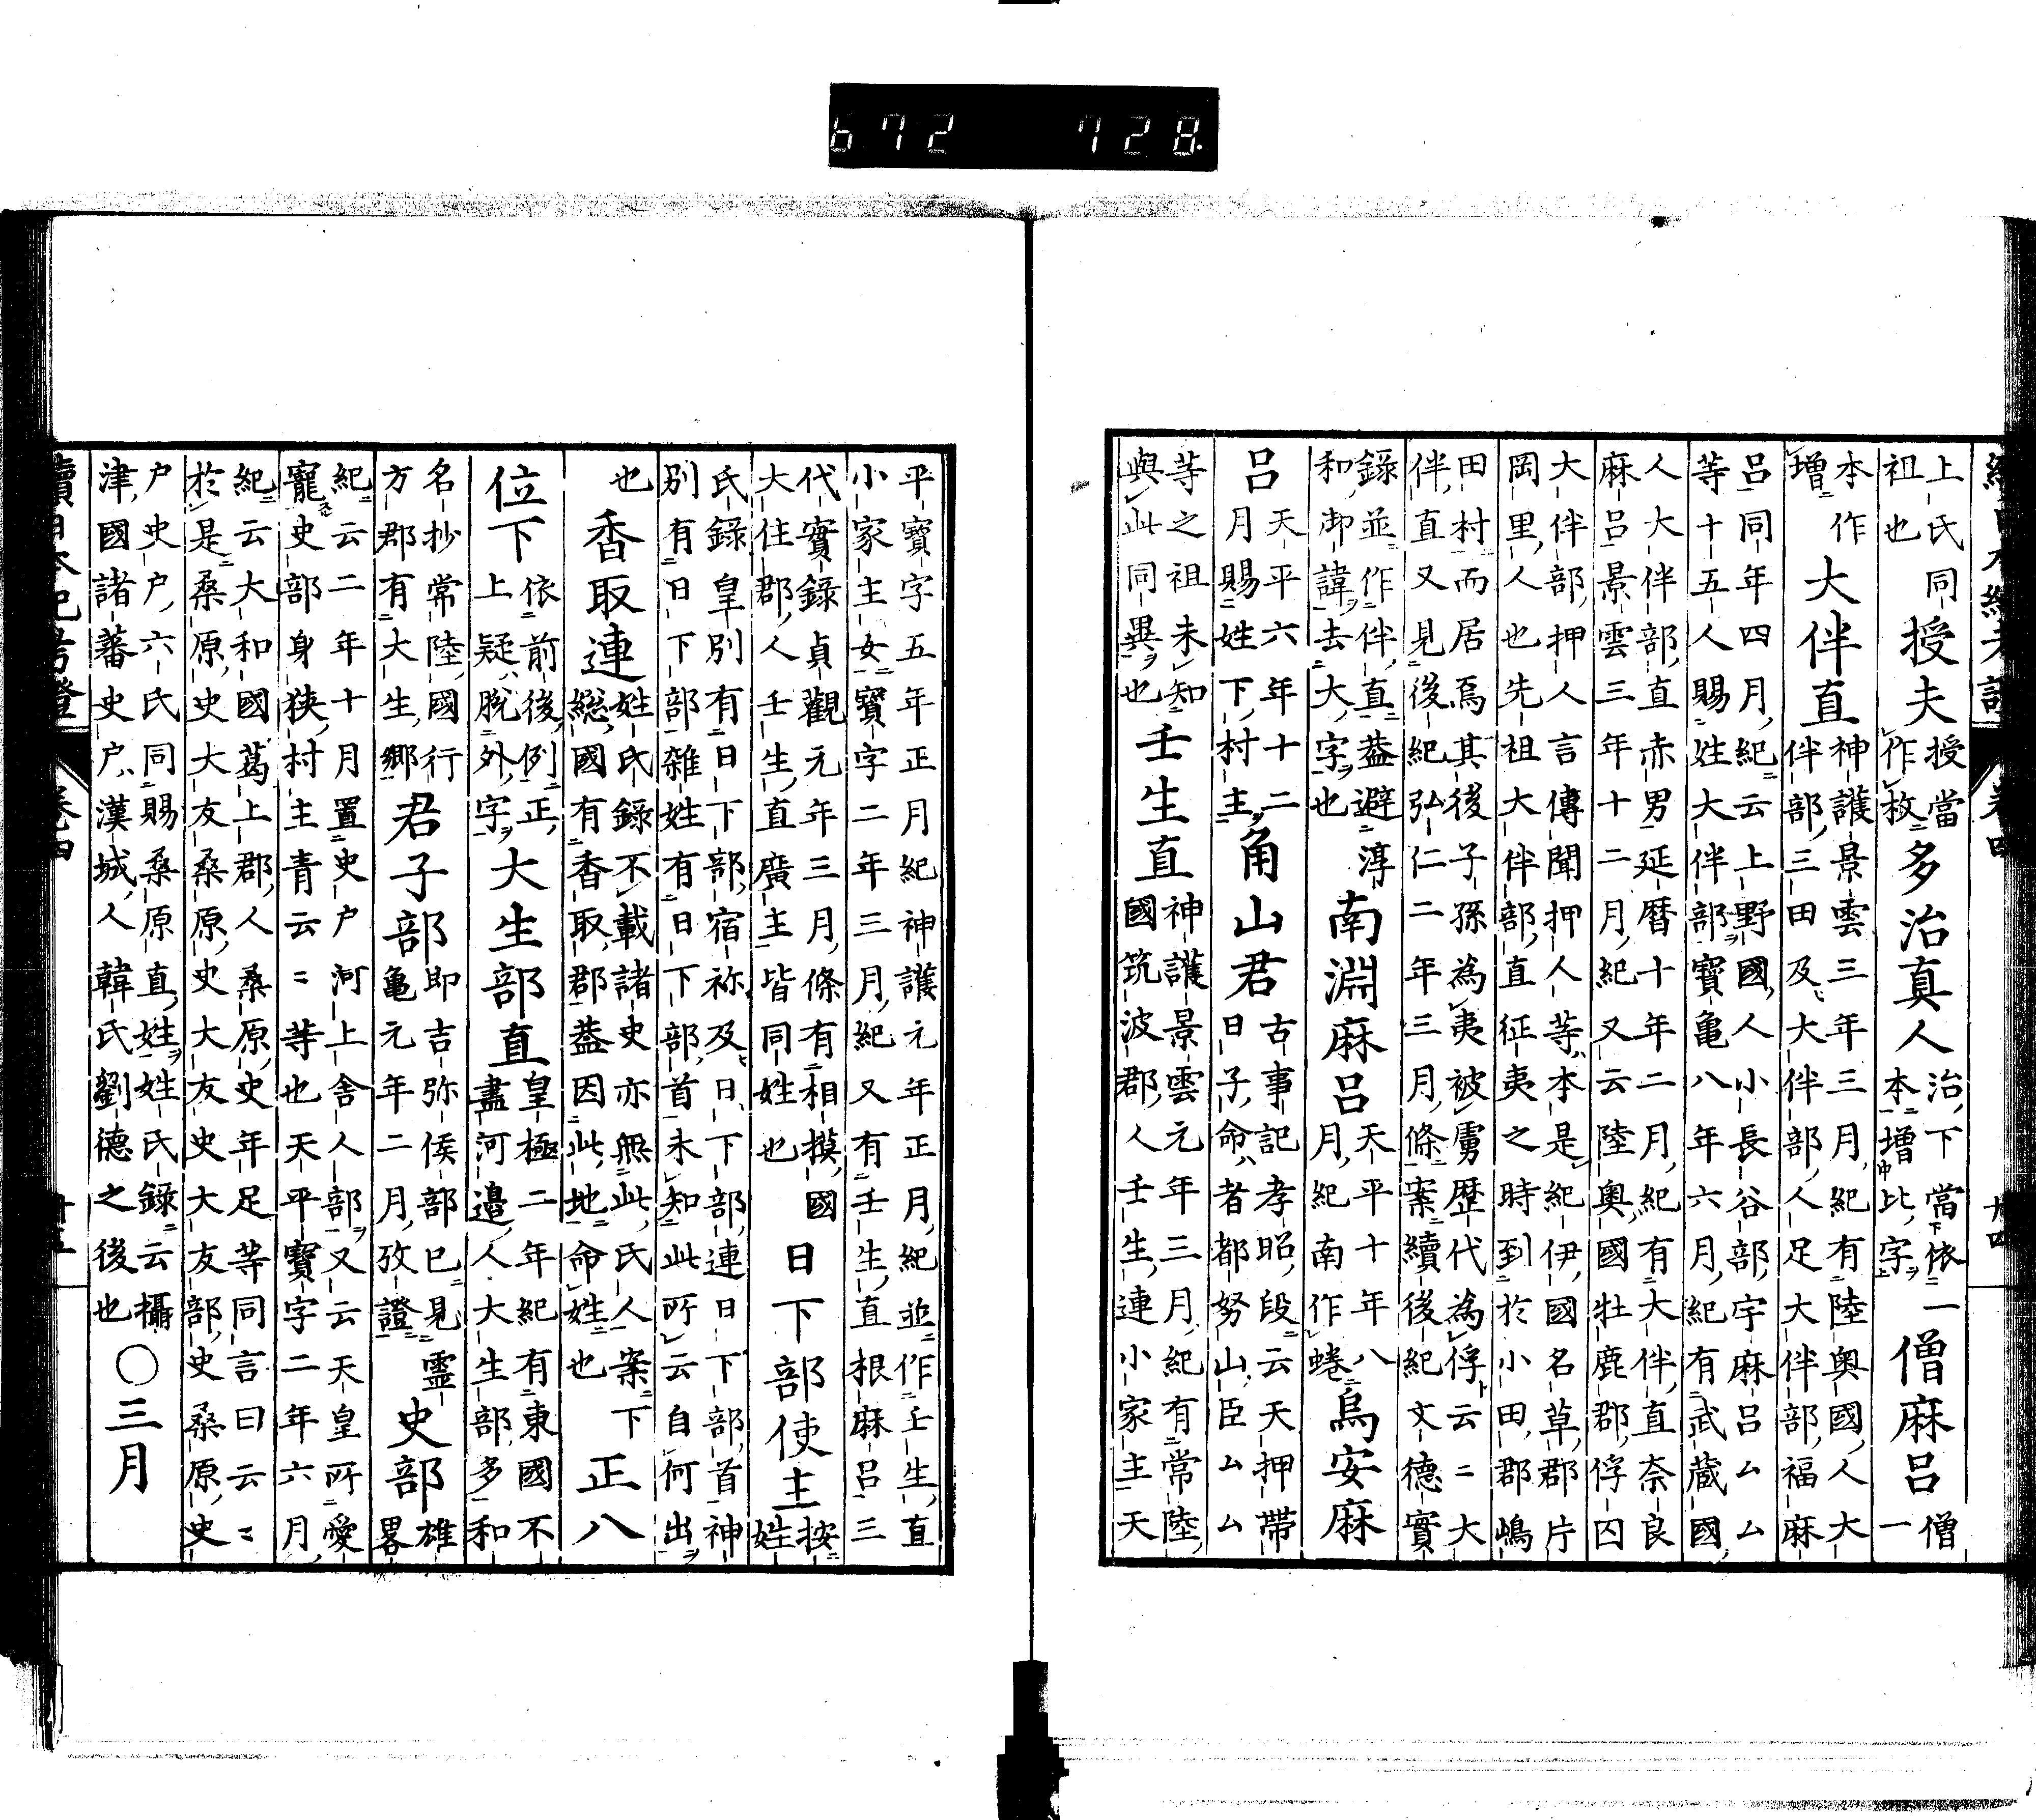 續日本紀考證 卷四 十四
上氏同祖也 授夫 授當作枚 多治真人 治下當依一本增比字 僧麻呂 僧一
本作増 大伴直 神護景雲三年三月紀有陸奧國人大伴部三田及大伴部人足大伴部福麻
呂同年四月紀云上野國人小長谷部宇麻呂ムム
等十五人賜姓大伴部寶亀八年六月紀有武蔵國
人大伴部直赤男延暦十年二月紀有大伴直奈良
麻呂景雲三年十二月紀又云陸奧國牡鹿郡俘囚
大伴部押人言傳聞押人等本是紀伊國名草郡片
岡里人也先祖大伴部直征夷之時到於小田郡嶋
田村而居焉其後子孫為夷被虜歴代為俘云〻大
伴直又見後紀弘仁二年三月條案續後紀文德實
錄並作伴直蓋避淳和御諱去大字也 南淵麻呂 天平十年八月紀南作蜷 烏安麻
呂 天平六年十二月賜姓下村主 角山君 古事記孝昭段云天押帶日子命者都努山臣ムム
等之祖未知與此同異也 壬生直 神護景雲元年三月紀有常陸國筑波郡人壬生連小家主天
平寶字五年正月紀神護元年正月紀並作壬生直
小家主女寶字二年三月紀又有壬生直根麻呂三
代實錄貞觀元年三月條有相摸國大住郡人壬生直廣主皆同姓也 日下部使主 按姓
氏錄皇別有日下部宿祢及日下部連日下部首神
別有日下部雜姓有日下部首未知此所云自何出
也 香取連 姓氏錄不載諸史亦無此氏人案下総國有香取郡蓋因此地命姓也 正八
位下 依前後例正上疑脱外字 大生部直 皇極二年紀有東國不盡河邉人大生部多和
名抄常陸國行方郡有大生郷 君子部 即吉弥侯部已見靈亀元年二月攷證 史部 雄畧
紀云二年十月置史戸河上舎人部又云天皇所愛
寵史部身狭村主青云〻等也天平寶字二年六月
紀云大和國葛上郡人桑原史年足等同言曰云〻
於是桑原史大友桑原史大友史大友部史桑原史
戸史戸六氏同賜桑原直姓姓氏錄云攝津國諸蕃史戸漢城人韓氏劉德之後也 〇三月
續日本紀考證 卷四 十五
b72 728.